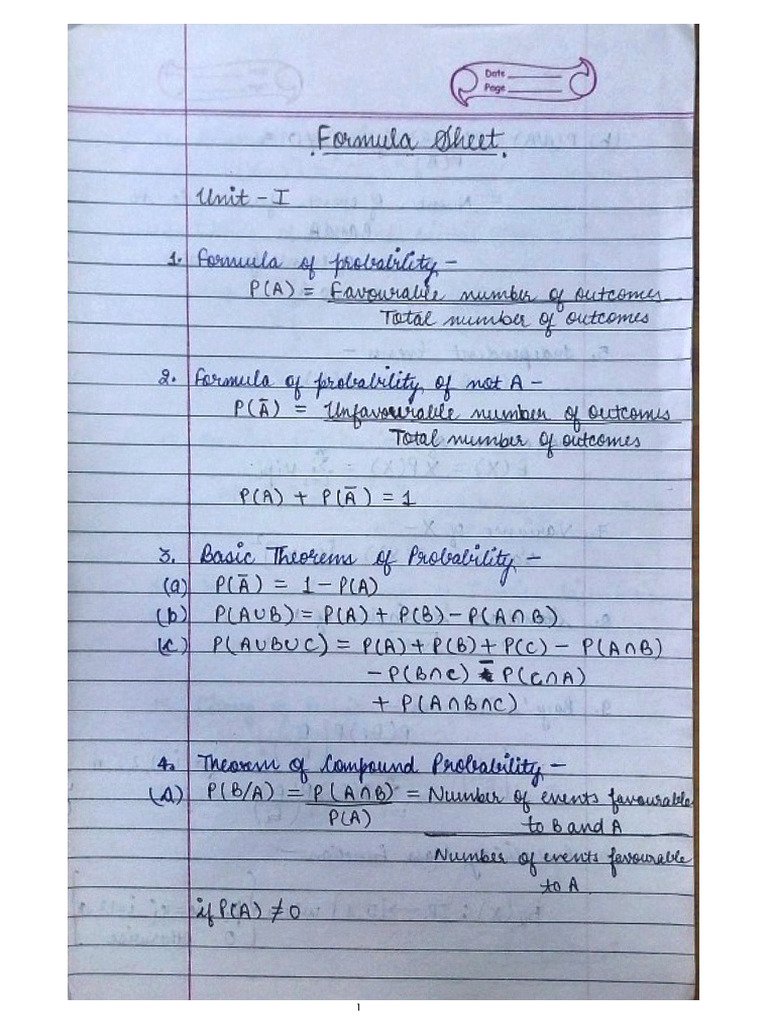 Date
Page
Formula Sheet
Unit - I
1. Formula of probability -
P(A) = Favourable number of outcomes
Total number of outcomes
2. Formula of probability of not A -
P(Ā) = Unfavourable number of outcomes
Total number of outcomes
P(A) + P(Ā) = 1
3. Basic Theorems of Probability -
(a) P(Ā) = 1 - P(A)
(b) P(A∪B) = P(A) + P(B) - P(A∩B)
(c) P(A∪B∪C) = P(A) + P(B) + P(C) - P(A∩B)
- P(B∩C) - P(C∩A)
+ P(A∩B∩C)
4. Theorem of Compound Probability -
(A) P(B/A) = P(A∩B) = Number of events favourable
P(A) to B and A
Number of events favourable
to A
if P(A) ≠ 0
1